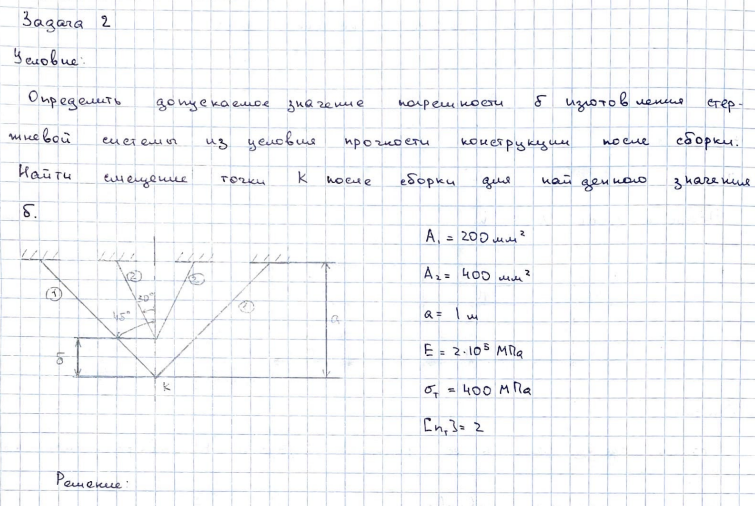 Задача 2
Условие:
Определить допускаемое значение погрешности δ изготовления стер-
жневой системы из условия прочности конструкции после сборки.
Найти смещение точки K после сборки для найденного значения
δ.
A₁ = 200 мм²
A₂ = 400 мм²
a = 1 м
E = 2·10⁵ МПа
σт = 400 МПа
[nт] = 2
① ② ② ①
30°
45°
a
δ
K
Решение: